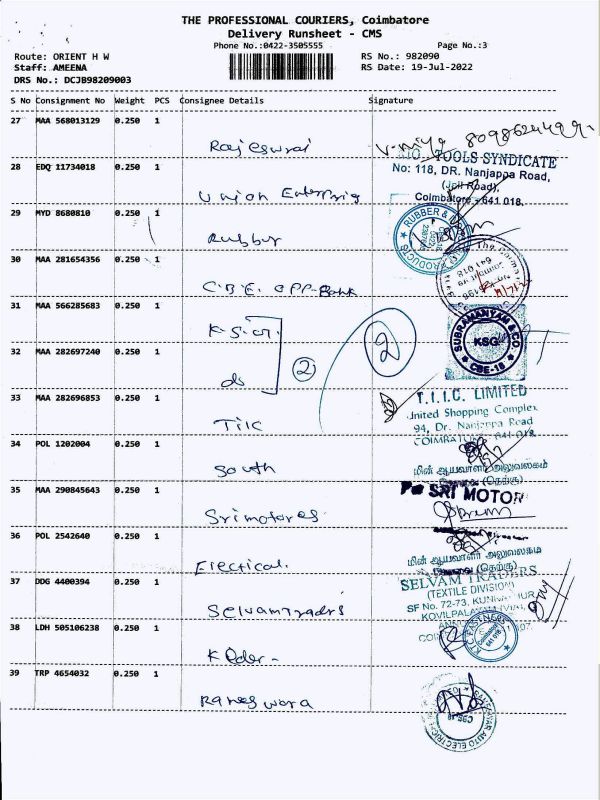 THE PROFESSIONAL COURIERS, Coimbatore
Delivery Runsheet - CMS
Phone No.:0422-3505555
Page No.:3
Route: ORIENT H W
RS No.: 982090
Staff: AMEENA
RS Date: 19-Jul-2022
DRS No.: DCJB98209003
S No Consignment No Weight PCS Consignee Details Signature
27 MAA 568013129 0.250 1
Rajeswrai
TOOLS SYNDICATE
No: 118, DR. Nanjappa Road,
(Jail Road),
Coimbatore - 641 018.
28 EDQ 11734018 0.250 1
Union Enterprig
29 MYD 8680810 0.250 1
Rubbur
RUBBER &
PRODUCTS
30 MAA 281654356 0.250 1
C.B.E. OPP-Bank
31 MAA 566285683 0.250 1
K.S.G.
SUBRAMANYAM & CO
KSG
CBE-18
32 MAA 282697240 0.250 1
do
2
2
33 MAA 282696853 0.250 1
TIIC
T.I.I.C. LIMITED
United Shopping Complex
94, Dr. Nanjappa Road
COIMBATORE 641 018.
34 POL 1202004 0.250 1
South
மின் ஆய்வாளர் அலுவலகம்
(தெற்கு)
35 MAA 290845643 0.250 1
Srimotores
For SRI MOTOR
36 POL 2542640 0.250 1
Electical.
மின் ஆய்வாளர் அலுவலகம்
(தெற்கு)
37 DDG 4400394 0.250 1
Selvamtradrs
SELVAM TRADERS
(TEXTILE DIVISION)
SF No. 72-73,
38 LDH 505106238 0.250 1
FASTNERS
39 TRP 4654032 0.250 1
Raneswara
AUTO ELECTRIC